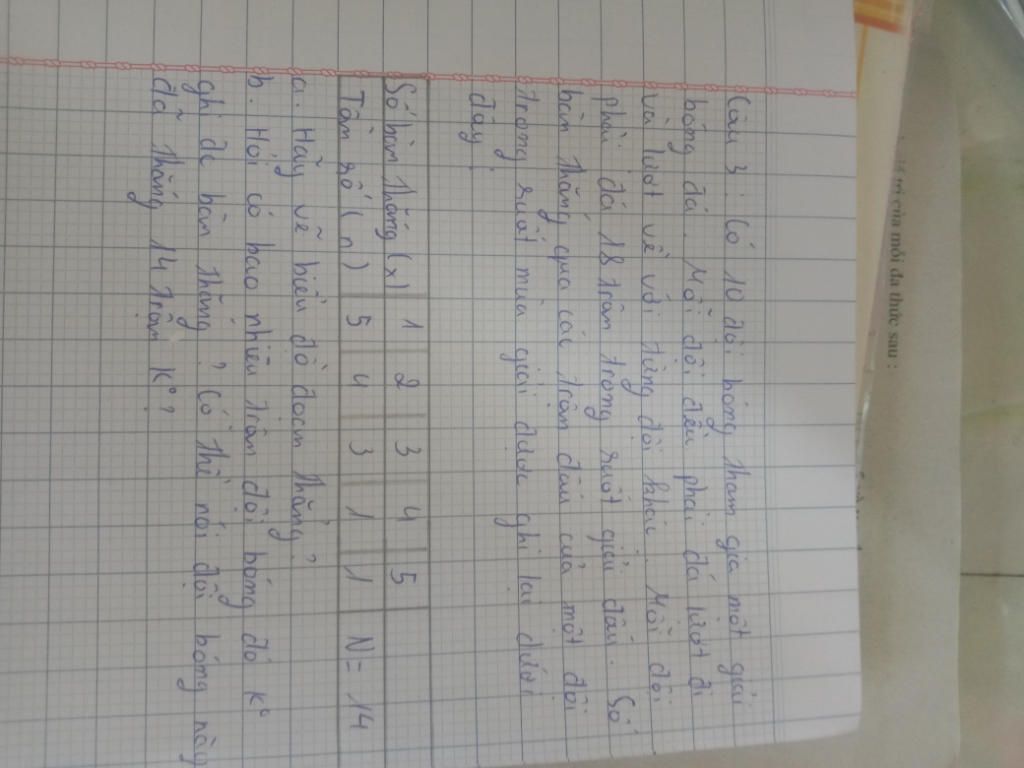 trị của mỗi đa thức sau :
Câu 3 : Có 10 đội bóng tham gia một giải
bóng đá. Mỗi đội đều phải đá lượt đi
và lượt về với từng đội khác. Mỗi đội
phải đá 18 trận trong suốt giải đấu. Số
bàn thắng qua các trận đấu của một đội
trong suốt mùa giải được ghi lại dưới
đây :
Số bàn thắng (x) 1 2 3 4 5
Tần số (n) 5 4 3 1 1 N = 14
a. Hãy vẽ biểu đồ đoạn thẳng ?
b. Hỏi có bao nhiêu trận đội bóng đó k°
ghi đc bàn thắng ? Có thể nói đội bóng này
đã thắng 14 trận k° ?